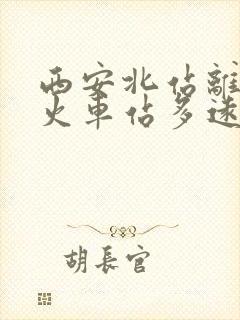 西安北佔離
火車佔多遠
胡長官